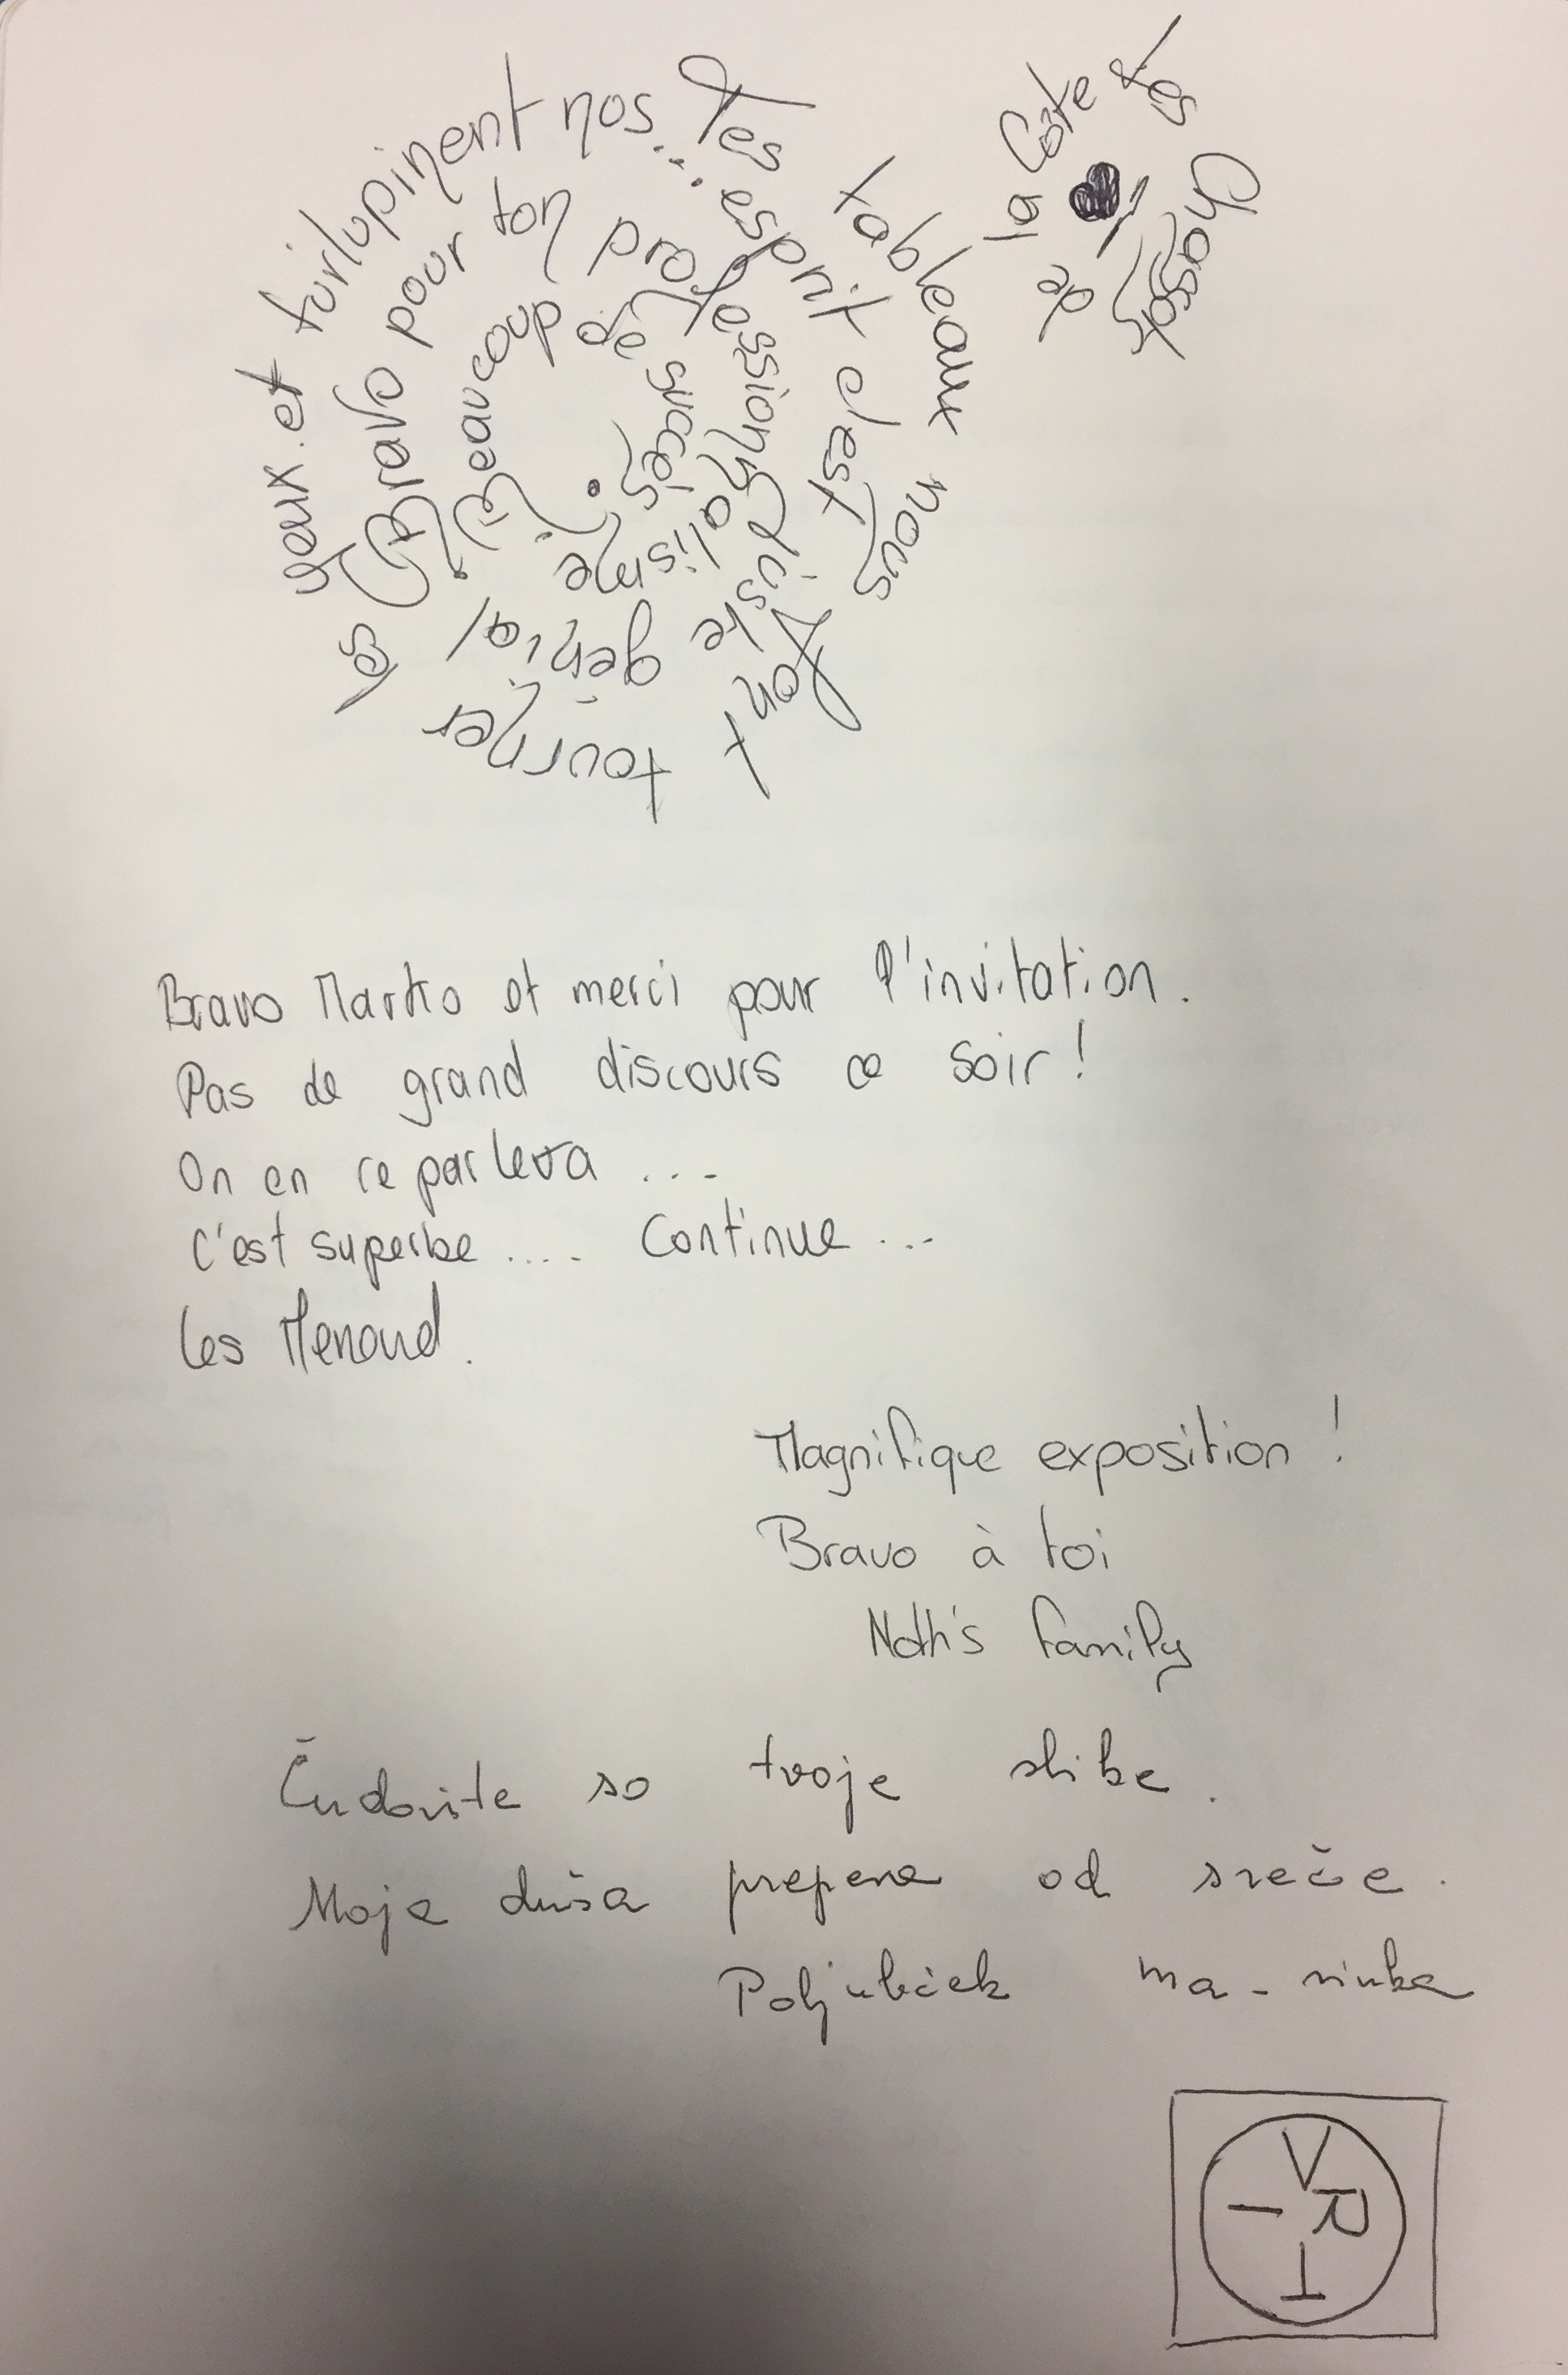 Tes tableaux nous font tourner les yeux. et turlupinent nos... esprit c'est juste génial. Bravo pour ton professionnalisme! Beaucoup de succès.
Chassot de la Côte
Bravo Marko et merci pour l'invitation.
Pas de grand discours ce soir!
On en reparlera ...
C'est superbe .... Continue ...
Les Menoud.
Magnifique exposition !
Bravo à toi
Noth's family
Čudovite so tvoje slike.
Moja duša prepeva od sreče.
Poljubček ma-minka
V R T I